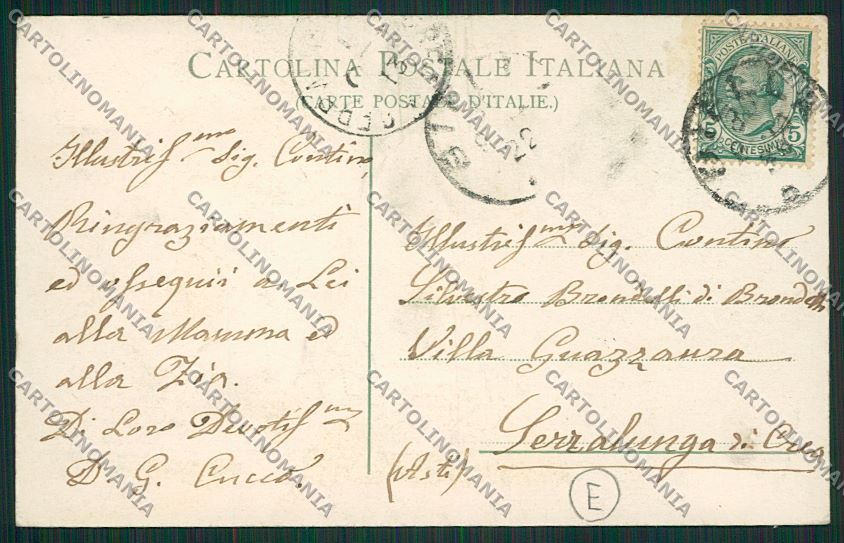 CARTOLINA POSTALE ITALIANA
(CARTE POSTALE D'ITALIE.)
POSTE ITALIANE
5
CENTESIMI
Illustrissmo Sig. Contino,
Ringraziamenti
ed ossequii a Lei
alla Mamma ed
alla Zia.
Di Loro Devotissmo
D. G. Cucco.
Illustrissmo Sig. Contino
Silvestro Brondelli di Brondello
Villa Guazzaura
Serralunga di Crea
(Asti)
E
CARTOLINOMANIA